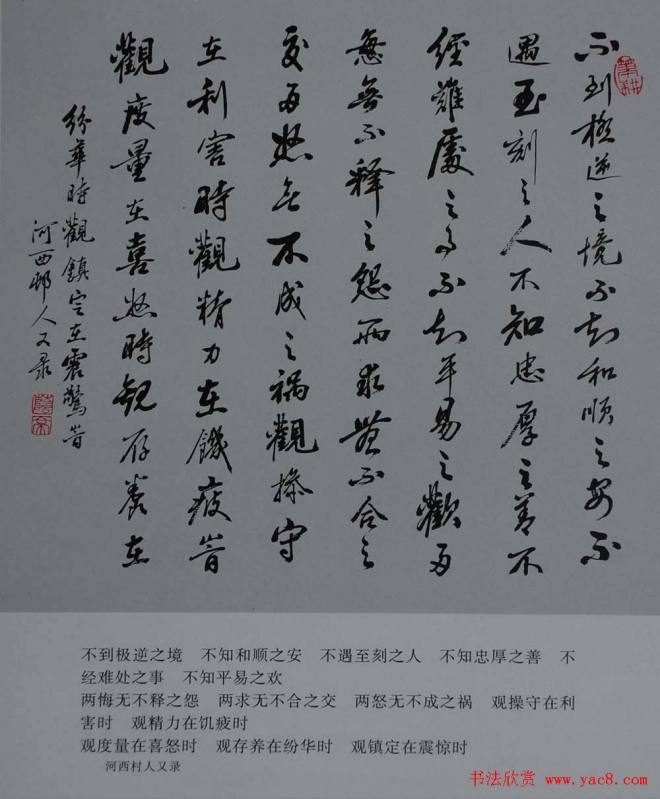 不到極逆之境不知和順之安不
遇至刻之人不知忠厚之善不
經難處之事不知平易之歡兩
悔無不釋之怨兩求無不合之
交兩怒無不成之禍觀操守
在利害時觀精力在饑疲時
觀度量在喜怒時觀存養在
紛華時觀鎮定在震驚時
河西邨人又录
不到极逆之境 不知和顺之安 不遇至刻之人 不知忠厚之善 不
经难处之事 不知平易之欢
两悔无不释之怨 两求无不合之交 两怒无不成之祸 观操守在利
害时 观精力在饥疲时
观度量在喜怒时 观存养在纷华时 观镇定在震惊时
河西村人又录
书法欣赏 www.yac8.com